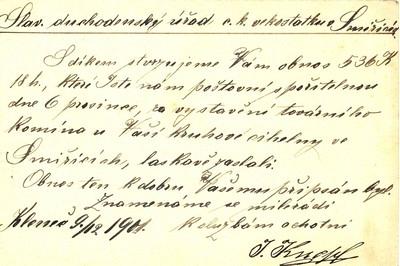 Slav. důchodenský úřad c. k. velkostatku v Smiřicích
S díkem stvrzujeme Vám obnos 536 K
18 h, který jste nám poštovní spořitelnou
dne 6 prosince, za vystavění továrního
komína u Vaší kruhové cihelny ve
Smiřicích, laskavě zaslali.
Obnos ten k dobru Vašemu připsán byl.
Znamenáme se mile rádi
Kleneč 9/12 1901 k službám ochotni
J.